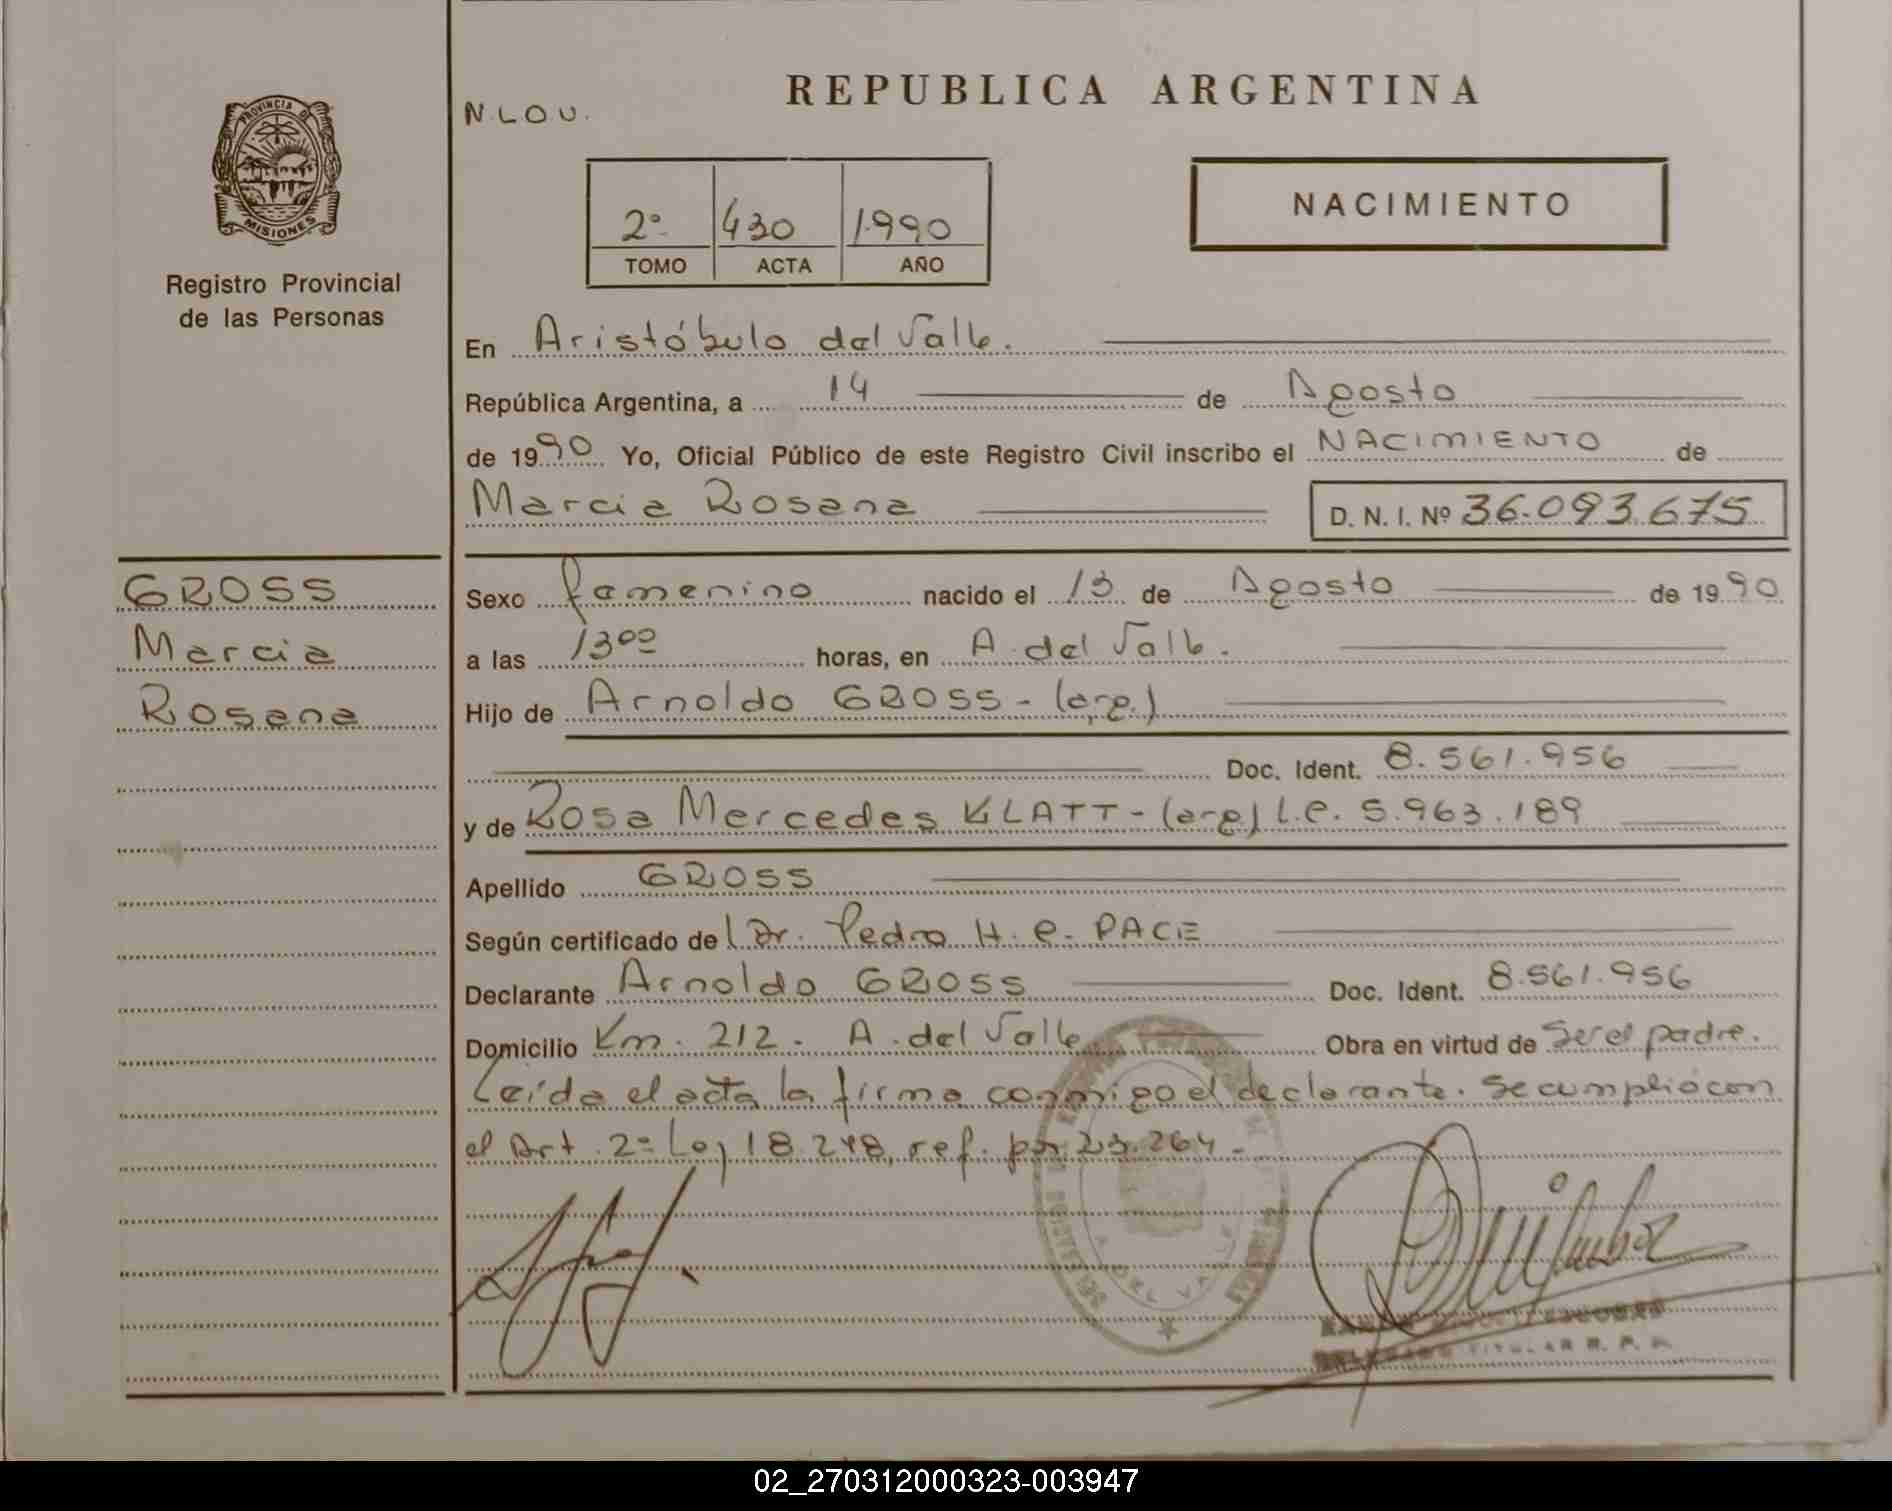 REPUBLICA ARGENTINA
N.L.O.U.
PROVINCIA DE
MISIONES
Registro Provincial
de las Personas
2º 430 1.990
TOMO ACTA AÑO
NACIMIENTO
En Aristóbulo del Valle.
República Argentina, a 14 de Agosto
de 1990 Yo, Oficial Público de este Registro Civil inscribo el NACIMIENTO de
Marcia Rosana D. N. I. Nº 36.093.675
GROSS
Marcia
Rosana
Sexo femenino nacido el 13 de Agosto de 1990
a las 13 00 horas, en A. del Valle.
Hijo de Arnoldo GROSS - (arg.)
Doc. Ident. 8.561.956
y de Rosa Mercedes KLATT - (arg) L.C. 5.963.189
Apellido GROSS
Según certificado del Dr. Pedro H. C. PACE
Declarante Arnoldo GROSS Doc. Ident. 8.561.956
Domicilio Km. 212. A. del Valle Obra en virtud de Ser el padre.
Leída el acta la firma conmigo el declarante. Se cumplió con
el Art. 2º Ley 18.248, ref. por 23.264.-
A. DEL VALLE
TITULAR R. P. P.
02_270312000323-003947